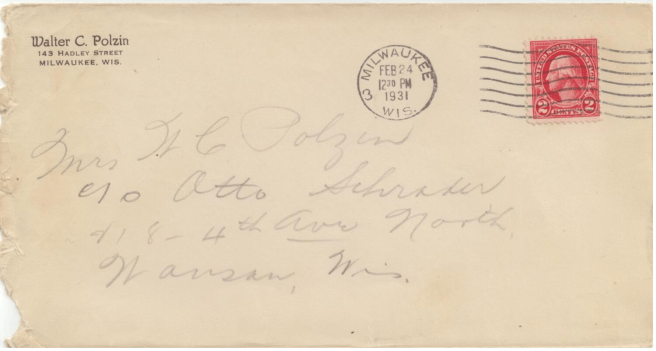 Walter C. Polzin
143 HADLEY STREET
MILWAUKEE, WIS.
MILWAUKEE
FEB 24
12 30 PM
1931
WIS.
3
2 2
Mrs W C Polzin
c/o Otto Schrader
818 - 4th Ave North,
Wausau, Wis.